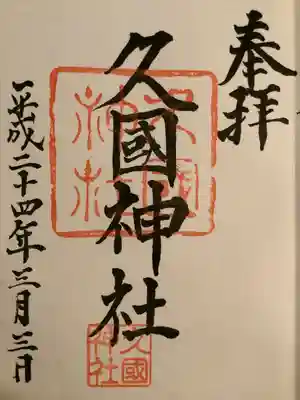 奉拝
久國神社
平成二十四年三月三日
久國
神社
久國
神社